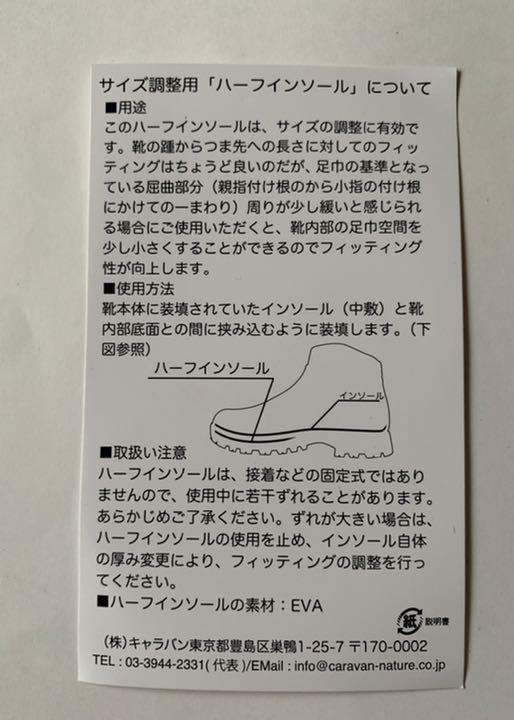 サイズ調整用「ハーフインソール」について
■用途
このハーフインソールは、サイズの調整に有効で
す。靴の踵からつま先への長さに対してのフィッ
ティングはちょうど良いのだが、足巾の基準となっ
ている屈曲部分（親指付け根のから小指の付け根
にかけての一まわり）周りが少し緩いと感じられ
る場合にご使用いただくと、靴内部の足巾空間を
少し小さくすることができるのでフィッティング
性が向上します。
■使用方法
靴本体に装填されていたインソール（中敷）と靴
内部底面との間に挟み込むように装填します。（下
図参照）
ハーフインソール
インソール
■取扱い注意
ハーフインソールは、接着などの固定式ではあり
ませんので、使用中に若干ずれることがあります。
あらかじめご了承ください。ずれが大きい場合は、
ハーフインソールの使用を止め、インソール自体
の厚み変更により、フィッティングの調整を行っ
てください。
■ハーフインソールの素材：EVA
紙 説明書
（株）キャラバン東京都豊島区巣鴨1-25-7 〒170-0002
TEL : 03-3944-2331( 代表 )/EMail : info@caravan-nature.co.jp